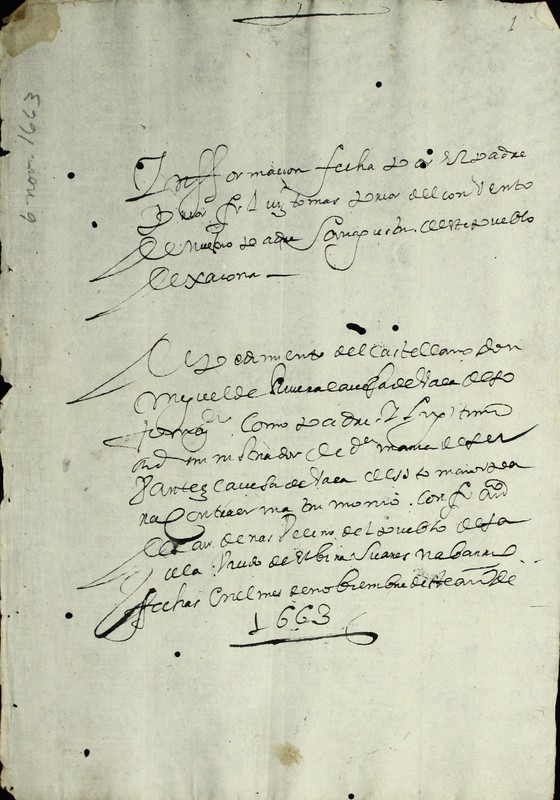 1
6 nov. 1663
Ynfformacion fecha por el Padre
Prior fr luis tomas prior del convento
de nuestro padre San agustin deste pueblo
de xacona
de pedimiento del castellano don
Miguel de Rivera cavesa de vaca de so
como padre Y lexitimo
administrador de da maria de ser
vantes cavesa de vaca de soto maior pa
ra contraer matrimonio con fr
de nas Vecino del pueblo de
viudo de Suares nabarro
ffechas en el mes de nobiembre deste año de
1663